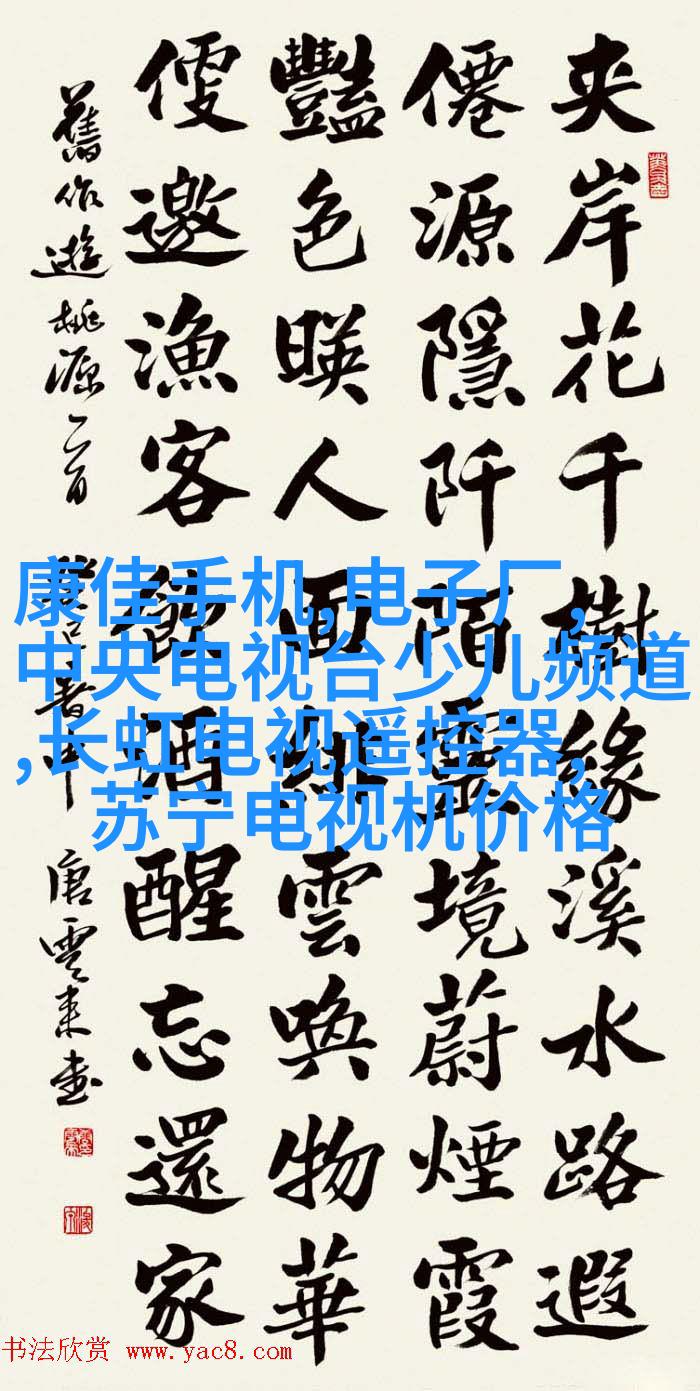 夹岸花千樹緣溪水路遐
僊源隱阡陌靈境蔚煙霞
豔色暎人面緋雲喚物華
便邀漁客飲酒醒忘還家
舊作遊桃源二首
唐雲来書
康佳手机,电子厂,
中央电视台少儿频道
,长虹电视遥控器,
苏宁电视机价格
书法欣赏 www.yac8.com